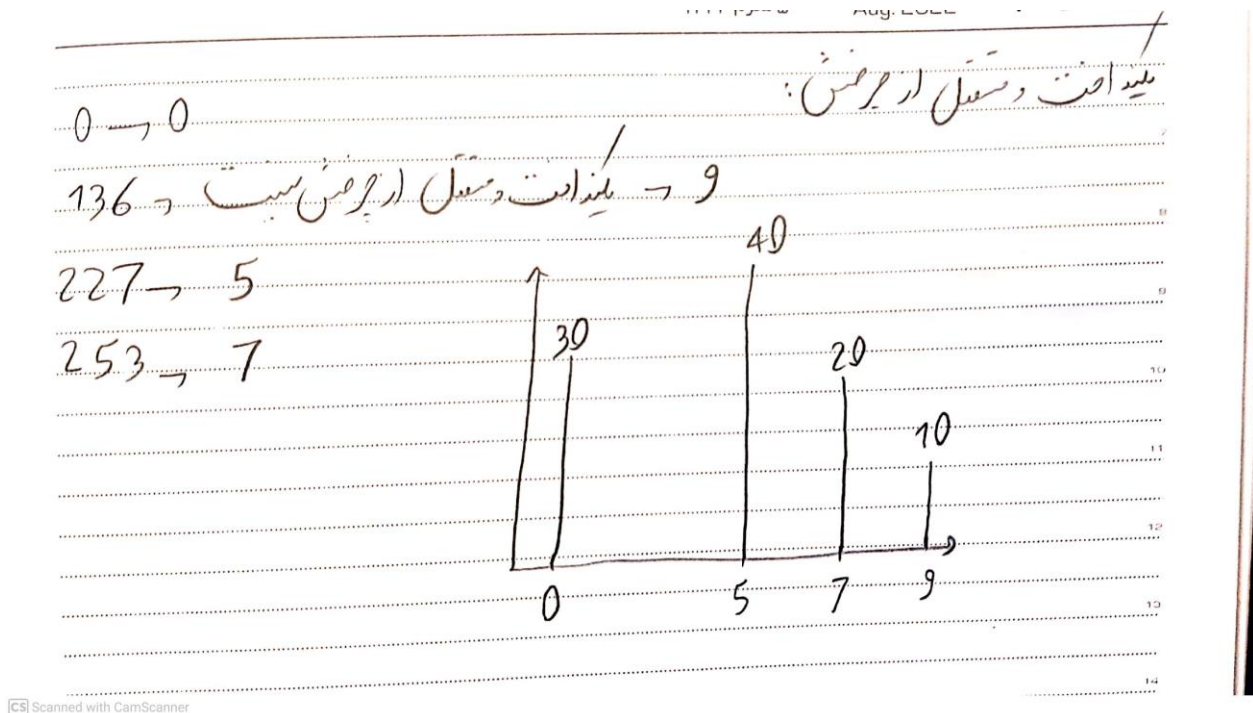 Aug. 2022
یکنواخت و مستقل از چرخش:
0 → 0
136 → یکنواخت و مستقل از چرخش نیست → 9
227 → 5
253 → 7
40
30
20
10
0 5 7 9
8
9
10
11
12
13
14
CS Scanned with CamScanner